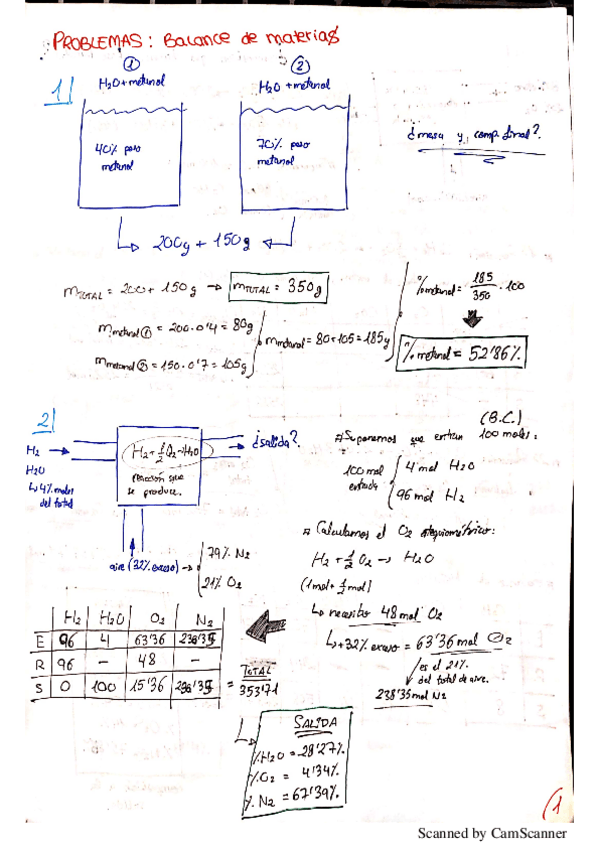 PROBLEMAS: Balance de materias
1|
①
H2O+metanol
40% peso
metanol
②
H2O +metanol
70% peso
metanol
¿masa y comp. final?
200g + 150g
mTOTAL = 200 + 150g → mTOTAL = 350g
mmetanol① = 200·0'4 = 80g
mmetanol② = 150·0'7 = 105g
mmetanol = 80+105 = 185g
%metanol = 185/350 · 100
% metanol = 52'86%
2|
H2
H2O
↳ 4% moles
del total
H2+½O2→H2O
reacción que
se produce.
¿salida?
aire (32% exceso) →
79% N2
21% O2
(B.C.)
Suponemos que entran 100 moles:
100 mol
entrada
4 mol H2O
96 mol H2
Calculamos el O2 estequiométrico:
H2 + ½O2 → H2O
(1mol + ½mol)
↳ necesito 48 mol O2
↳ +32% exceso = 63'36 mol O2
es el 21%
del total de aire.
238'35 mol N2
H2 H2O O2 N2
E 96 4 63'36 238'35
R 96 — 48 —
S 0 100 15'36 238'35 = TOTAL 353'71
SALIDA
% H2O = 28'27%
% O2 = 4'34%
% N2 = 67'39%
1
Scanned by CamScanner